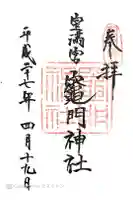 奉拝
宝満宮
竈門神社
平成二十七年四月十九日